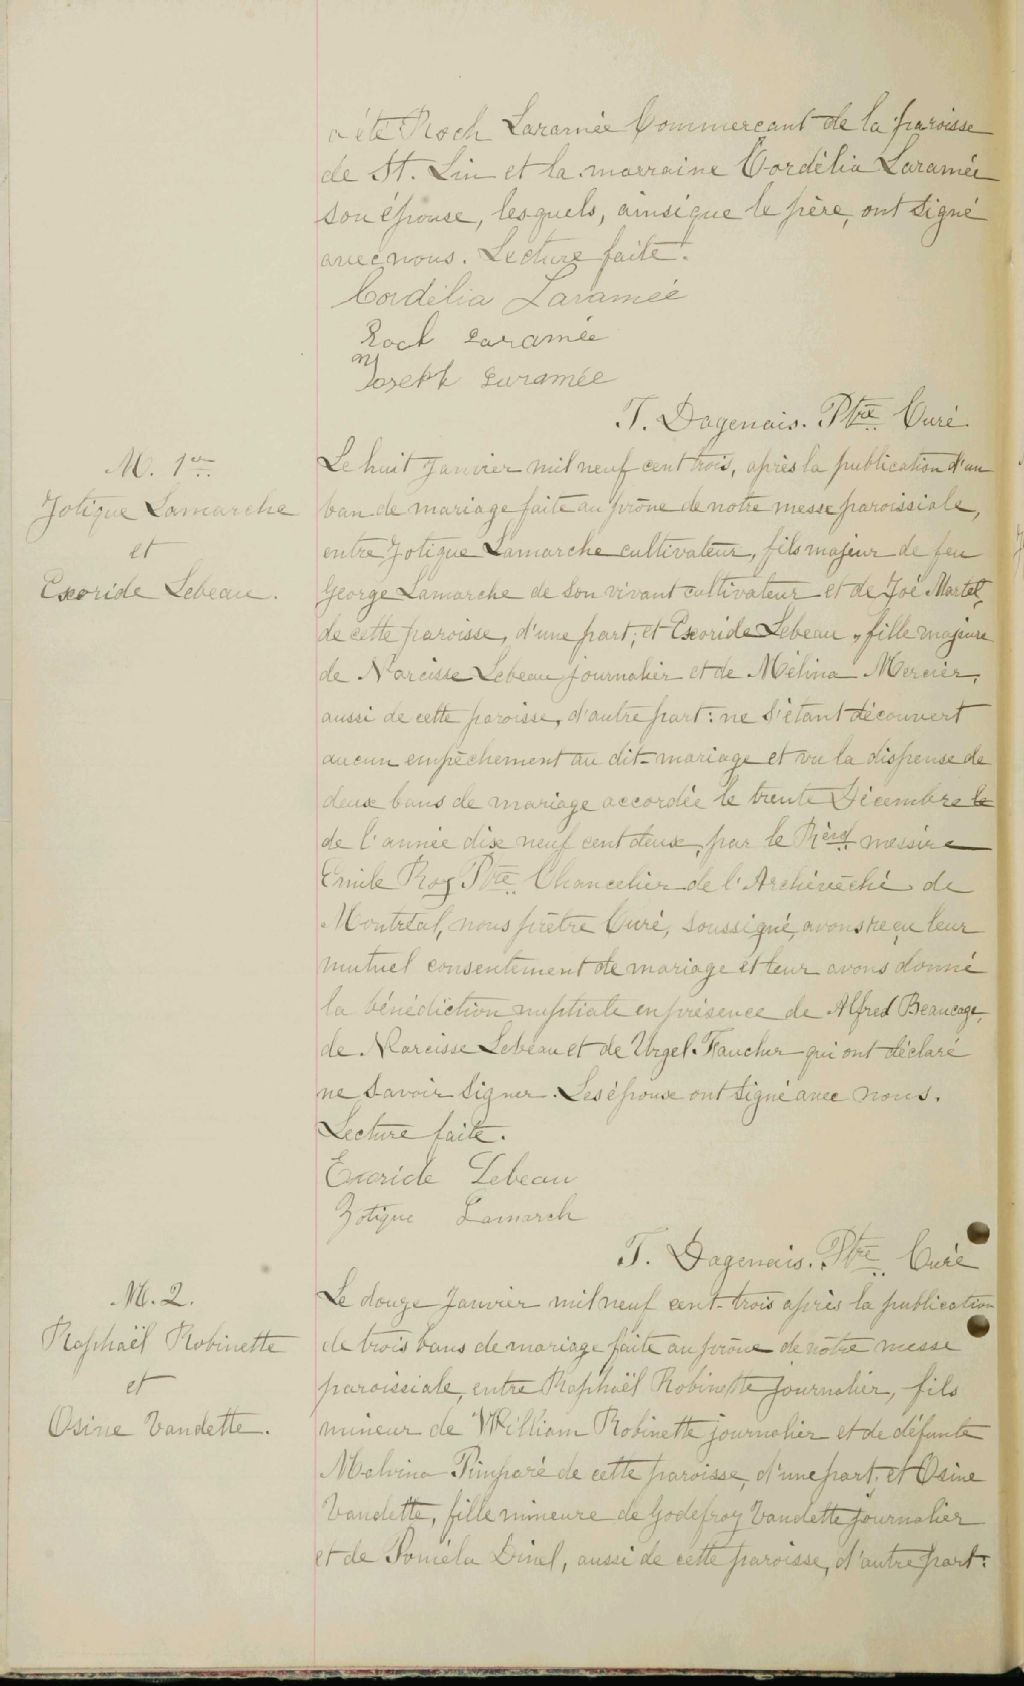 a été Roch Laramée Commerçant de la paroisse
de St. Lin et la marraine Cordélia Laramée
son épouse, lesquels, ainsi que le père, ont signé
avec nous. Lecture faite.
Cordélia Laramée
Roch Laramée
Joseph Laramée
T. Dagenais. Ptre Curé.
M. 1er
Zotique Lamarche
et
Exoride Lebeau.
Le huit Janvier mil neuf cent trois, après la publication d'un
ban de mariage faite au prône de notre messe paroissiale,
entre Zotique Lamarche cultivateur, fils majeur de feu
George Lamarche de son vivant cultivateur et de Zoé Martel,
de cette paroisse, d'une part; et Exoride Lebeau, fille majeure
de Narcisse Lebeau journalier et de Mélina Mercier,
aussi de cette paroisse, d'autre part: ne s'étant découvert
aucun empêchement au dit-mariage et vu la dispense de
deux bans de mariage accordée le trente Décembre le
de l'année dix neuf cent deux, par le Rèvd messire
Emile Roy Ptre Chancelier de l'Archévêché de
Montréal, nous prêtre Curé, soussigné, avons reçu leur
mutuel consentement de mariage et leur avons donné
la bénédiction nuptiale en présence de Alfred Beaucage,
de Narcisse Lebeau et de Urgel Faucher qui ont déclaré
ne savoir signer. Les épouse ont signé avec nous.
Lecture faite.
Exoride Lebeau
Zotique Lamarch
T. Dagenais. Ptre Curé
M. 2.
Raphaël Robinette
et
Osine Vandette.
Le douze Janvier mil neuf cent-trois après la publication
de trois bans de mariage faite au prône de nôtre messe
paroissiale, entre Raphaël Robinette journalier, fils
mineur de William Robinette journalier et de défunte
Malvina Pimparé de cette paroisse, d'une part; et Osine
Vandette, fille mineure de Godefroy Vandette journalier
et de Poméla Dinel, aussi de cette paroisse, d'autre part: